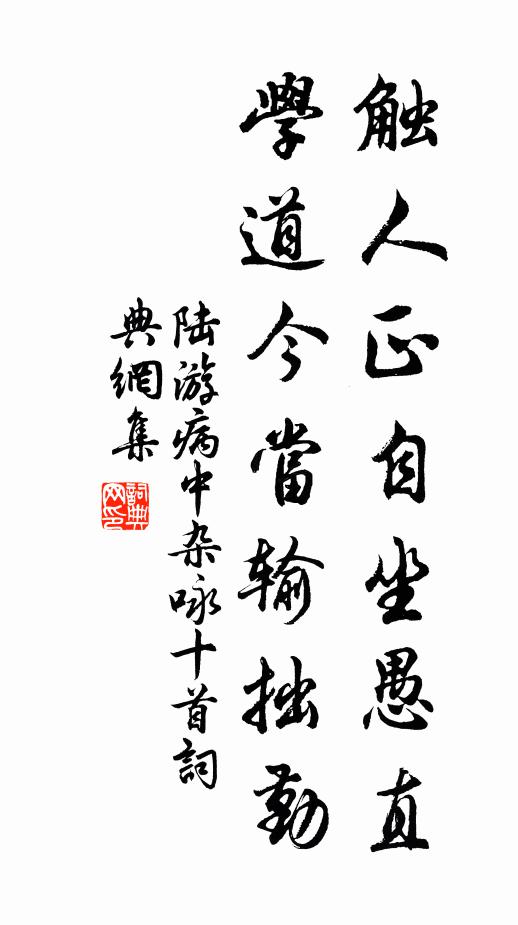 触人正自坐愚直
學道今當输拙勤
陆游病中杂咏十首詞
典網集
詞典网印